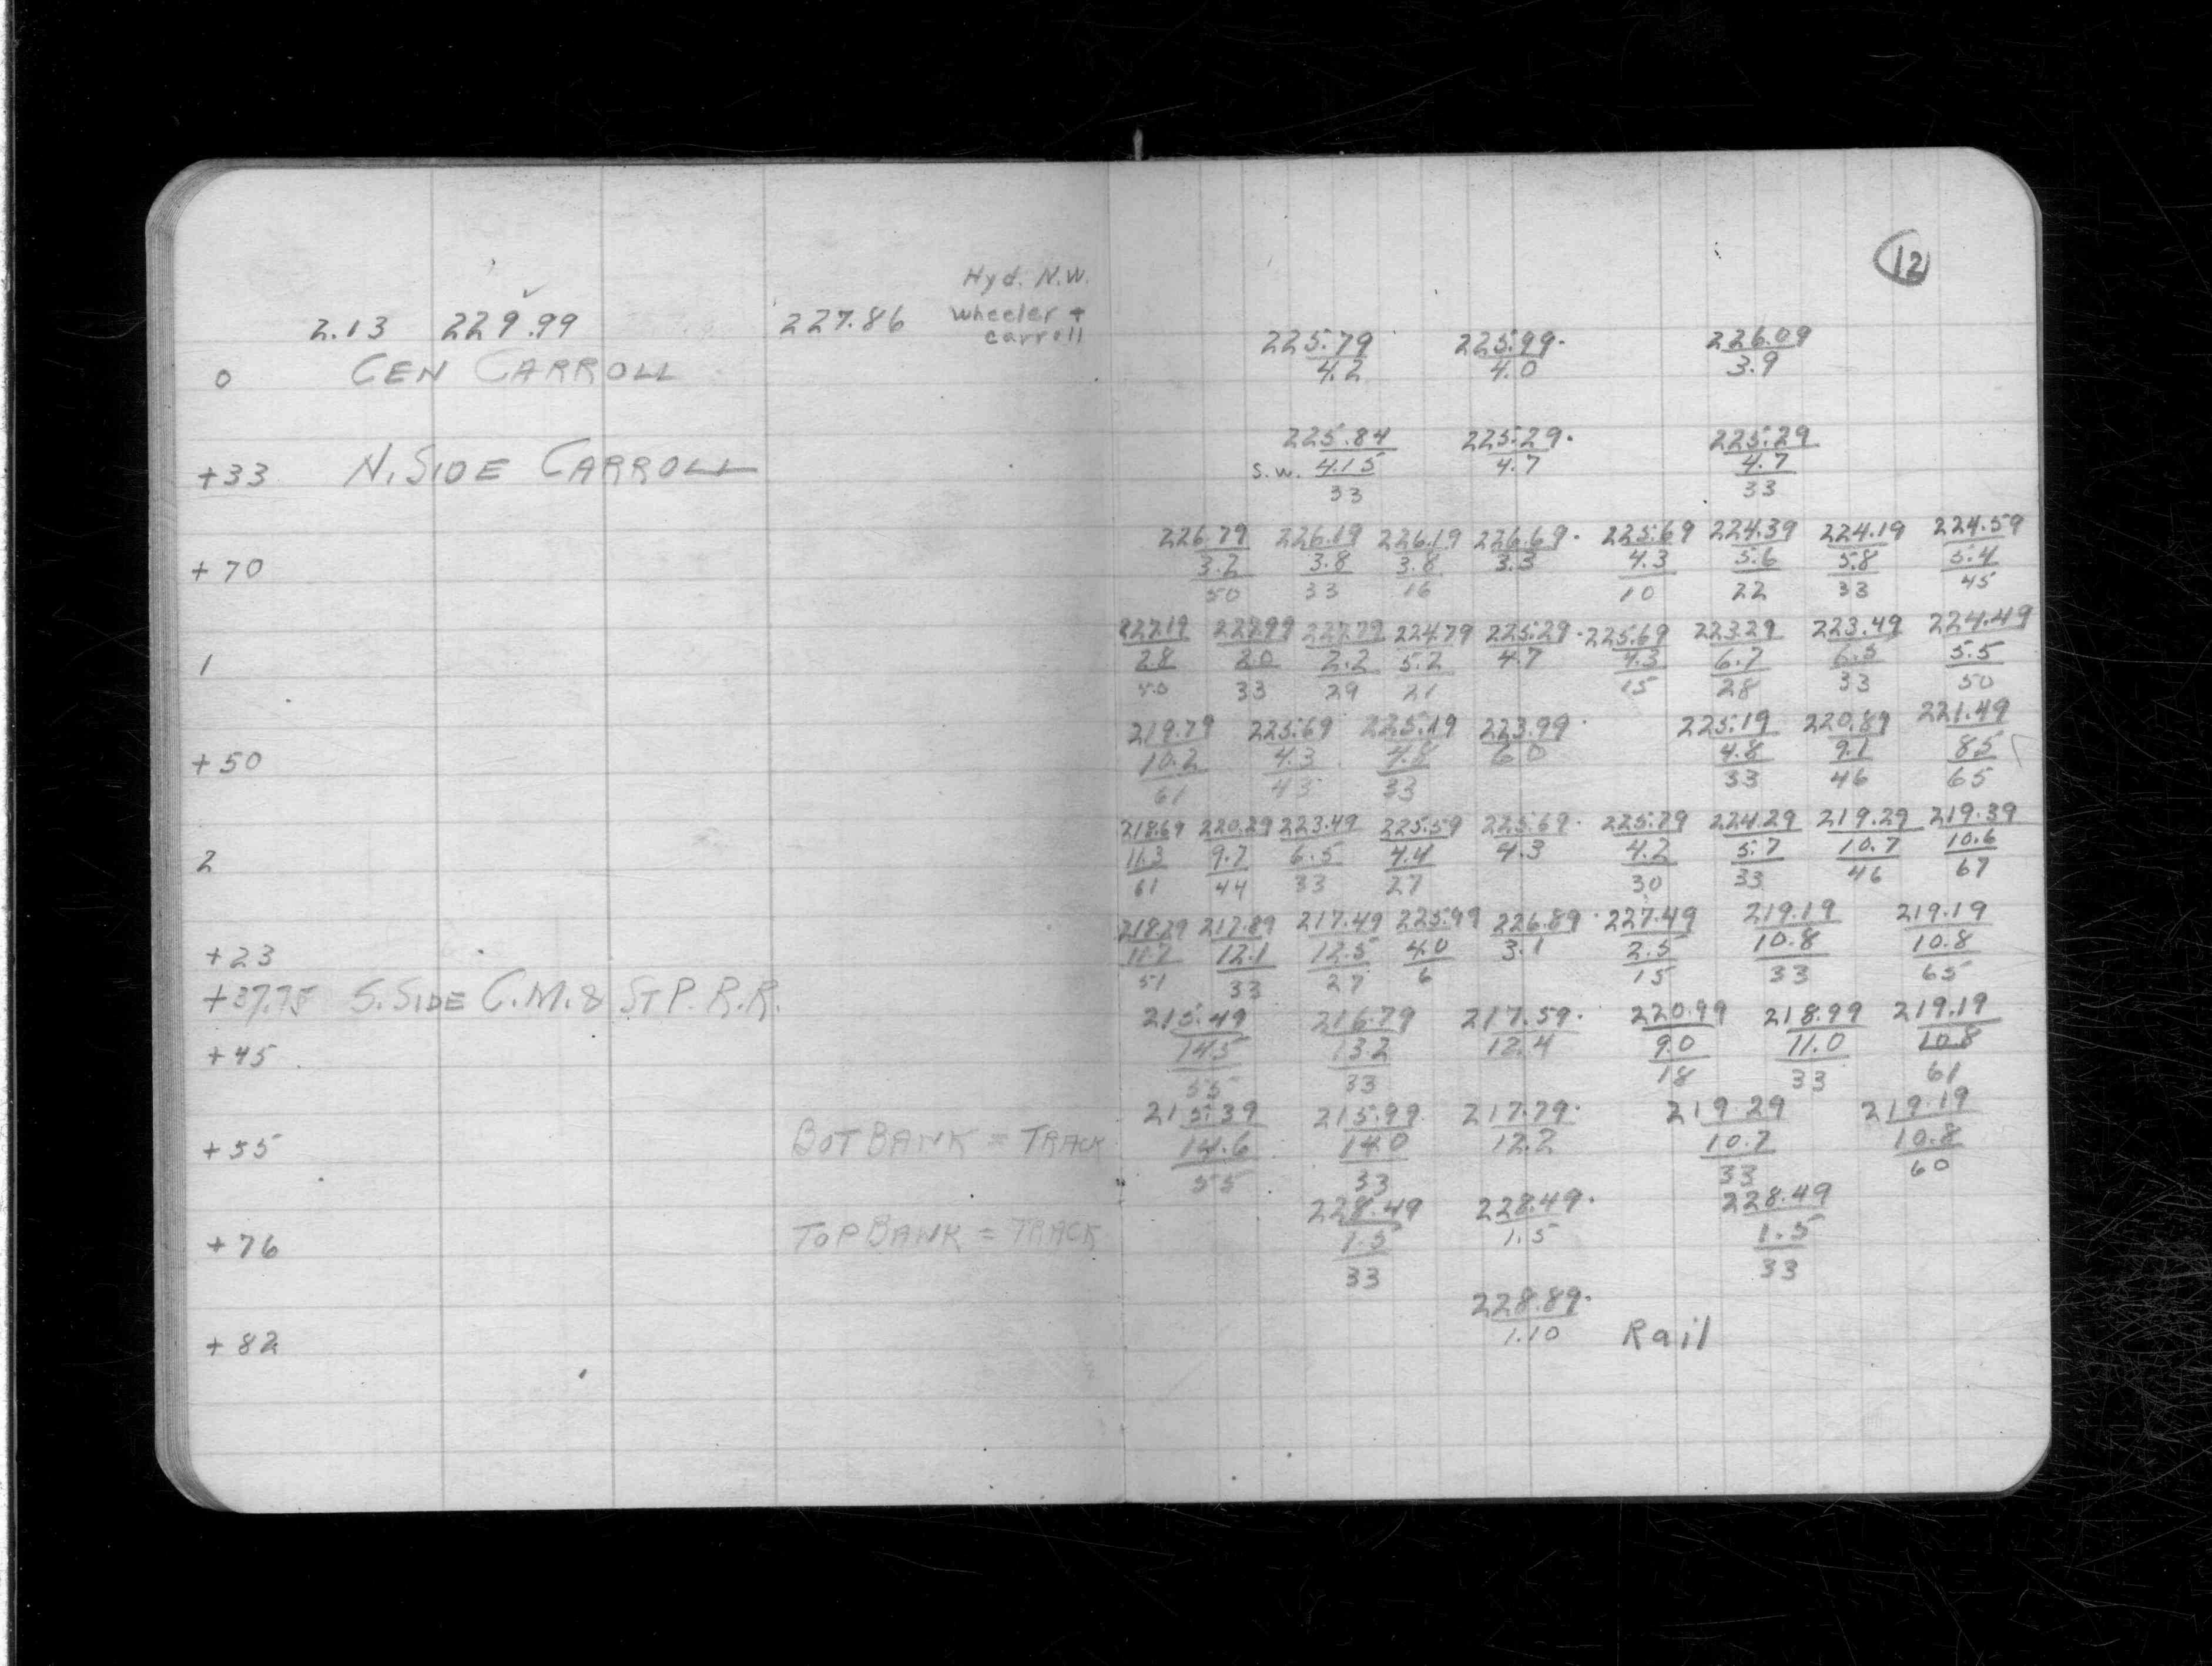 12
Hyd. N.W.
2.13 229.99 227.86 wheeler +
carroll
225.79 225.99. 226.09
0 CEN CARROLL 4.2 4.0 3.9
225.84 225.29. 225.29
+33 N. SIDE CARROLL S.W. 4.15 4.7 4.7
33 33
226.79 226.19 226.19 226.69. 225.69 224.39 224.19 224.59
+70 3.2 3.8 3.8 3.3 4.3 5.6 5.8 5.4
50 33 16 10 22 33 45
227.19 227.99 227.79 224.79 225.29. 225.69 223.29 223.49 224.49
1 2.8 2.0 2.2 5.2 4.7 4.3 6.7 6.5 5.5
50 33 29 21 15 28 33 50
219.79 225.69 225.19 223.99. 225.19 220.89 221.49
+50 10.2 4.3 4.8 6.0 4.8 9.1 8.5
61 45 33 33 46 65
218.69 220.29 223.49 225.59 225.69. 225.79 224.29 219.29 219.39
2 11.3 9.7 6.5 4.4 4.3 4.2 5.7 10.7 10.6
61 44 33 27 30 33 46 67
218.29 217.89 217.49 225.99 226.89. 227.49 219.19 219.19
+23 11.7 12.1 12.5 4.0 3.1 2.5 10.8 10.8
51 33 27 6 15 33 65
+37.75 S. SIDE C.M. & ST P. R.R.
215.49 216.79 217.59. 220.99 218.99 219.19
+45 14.5 13.2 12.4 9.0 11.0 10.8
55 33 18 33 61
215.39 215.99 217.79. 219.29 219.19
+55 BOT BANK = TRACK 14.6 14.0 12.2 10.7 10.8
55 33 33 60
228.49 228.49. 228.49
+76 TOP BANK = TRACK 1.5 1.5 1.5
33 33
228.89.
+82 1.10 Rail